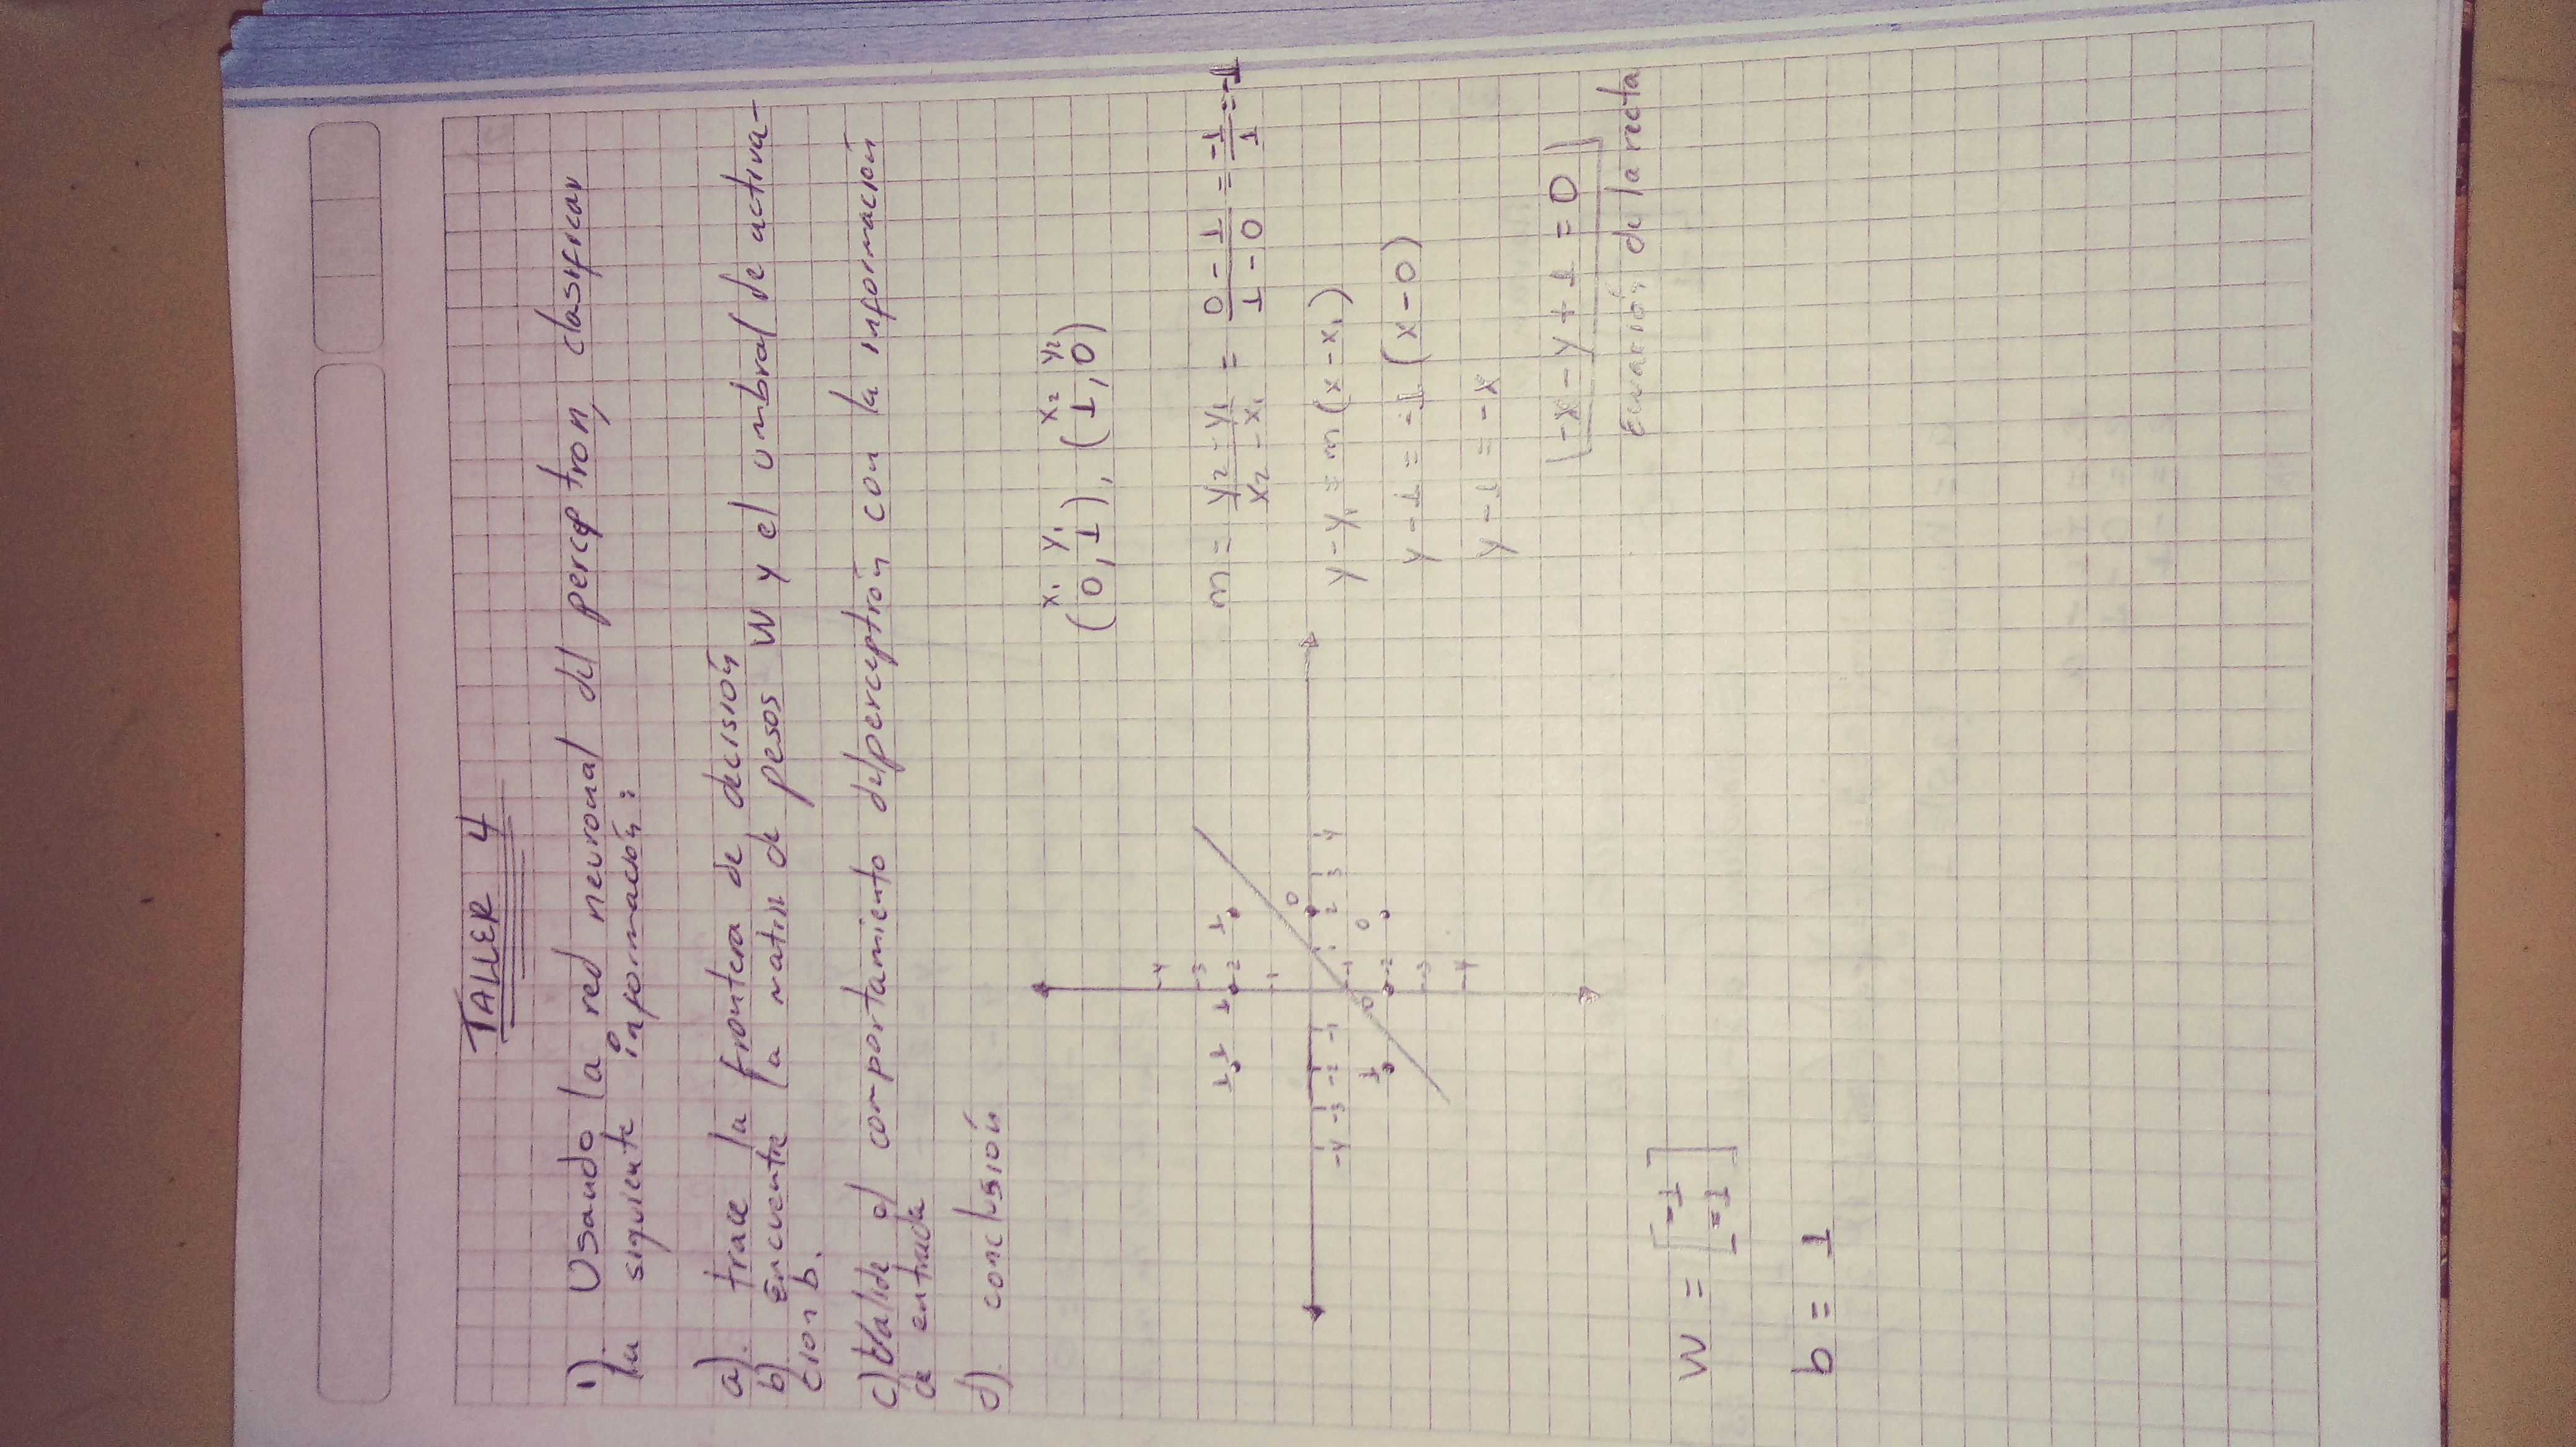 TALLER 4
1). Usando la red neuronal del perceptron, clasificar
la siguiente información:
a). trace la frontera de decisión
b) Encuentre la matriz de pesos W y el umbral de activa-
ción b.
c) Valide el comportamiento del perceptrón con la información
de entrada
d). conclusión
x₁ y₁ x₂ y₂
(0,1), (1,0)
4
3
1 1 1 2 1
1
m = y₂ - y₁ / x₂ - x₁ = 0 - 1 / 1 - 0 = -1 / 1 = -1
0
-4 -3 -2 -1 1 2 3 4
y - y₁ = m(x - x₁)
-1
1 0 -2 0
-3
-4
y - 1 = -1 (x - 0)
y - 1 = -x
-x - y + 1 = 0
Ecuación de la recta
W = [-1
-1]
b = 1